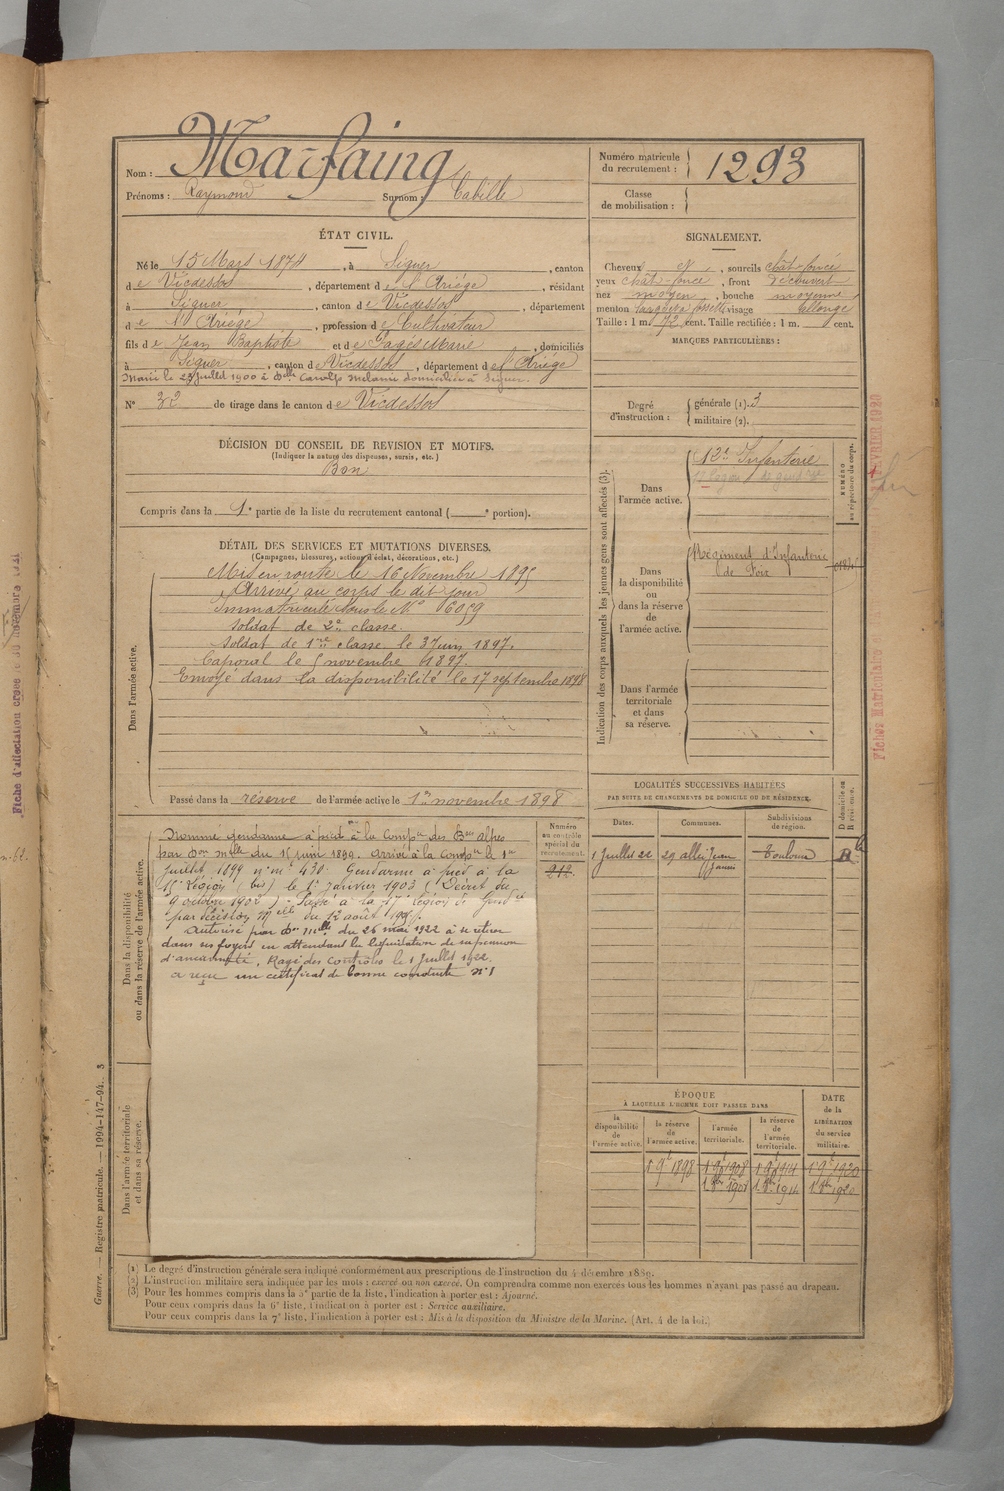 Nom : Marfaing
Prénoms : Raymond Surnom : Cabille
Numéro matricule du recrutement : 1293
Classe de mobilisation :
ÉTAT CIVIL.
Né le 15 Mars 1874, à Siguer, canton
de Vicdessos, département de l'Ariège, résidant
à Siguer, canton de Vicdessos, département
de l'Ariège, profession de Cultivateur
fils de Jean Baptiste et de Pagès Marie, domiciliés
à Siguer, canton de Vicdessos, département de l'Ariège
Marié le 29 Juillet 1900 à Delle Mélanie domiciliée à Siguer.
N° 32 de tirage dans le canton de Vicdessos
DÉCISION DU CONSEIL DE REVISION ET MOTIFS.
(Indiquer la nature des dispenses, sursis, etc.)
Bon
Compris dans la 1e partie de la liste du recrutement cantonal ( e portion).
SIGNALEMENT.
Cheveux et, sourcils chât-foncé
yeux chât-foncé, front découvert
nez moyen, bouche moyenne
menton visage allongé
Taille : 1 m. 72 cent. Taille rectifiée : 1 m. cent.
MARQUES PARTICULIÈRES :
Degré d'instruction : générale (1). 3
militaire (2).
DÉTAIL DES SERVICES ET MUTATIONS DIVERSES.
(Campagnes, blessures, actions d'éclat, décorations, etc.)
Dans l'armée active.
Mis en route le 16 Novembre 1895
Arrivé au corps le dit jour
Immatriculé sous le N° 6059
Soldat de 2e classe.
Soldat de 1re classe le 3 Juin 1897.
Caporal le 5 novembre 1897.
Envoyé dans la disponibilité le 17 septembre 1898
Passé dans la réserve de l'armée active le 1er novembre 1898
Indication des corps auxquels les jeunes gens sont affectés (3).
NUMÉRO au répertoire du corps.
Dans l'armée active.
12e Infanterie
Dans la disponibilité ou dans la réserve de l'armée active.
Régiment d'Infanterie
de Foix
Dans l'armée territoriale et dans sa réserve.
Dans la disponibilité ou dans la réserve de l'armée active.
Nommé gendarme à pied à la Compie des Bses Alpes
par Don Mlle du 15 juin 1899. Arrivé à la Compie le 1er
juillet 1899 n° m° 430. Gendarme à pied à la
15e Légion (bis) le 1er janvier 1903 (Décret du
9 octobre 1902) - Passé à la 17e Légion de Gend
par décision Melle du 12 août
Autorisé par Don Mlle du 26 mai 1922 à se retirer
dans ses foyers en attendant la liquidation de sa pension
d'ancienneté. Rayé des contrôles le 1 Juillet 1922.
a reçu un certificat de bonne conduite n° 1
Numéro au contrôle spécial du recrutement.
212.
Dans l'armée territoriale et dans sa réserve.
LOCALITÉS SUCCESSIVES HABITÉES
PAR SUITE DE CHANGEMENTS DE DOMICILE OU DE RÉSIDENCE.
Dates. Communes. Subdivisions de région. D domicile ou R résidence.
1 Juillet 22 29 allée Jean Toulouse R
ÉPOQUE
À LAQUELLE L'HOMME DOIT PASSER DANS
la disponibilité de l'armée active.
la réserve de l'armée active.
l'armée territoriale.
la réserve de l'armée territoriale.
DATE de la LIBÉRATION du service militaire.
1 9e 1898 1 9e 1908 1 9e 1914 1 9e 1920
(1) Le degré d'instruction générale sera indiqué conformément aux prescriptions de l'instruction du 4 décembre 1889.
(2) L'instruction militaire sera indiquée par les mots : exercé ou non exercé. On comprendra comme non exercés tous les hommes n'ayant pas passé au drapeau.
(3) Pour les hommes compris dans la 5e partie de la liste, l'indication à porter est : Ajourné.
Pour ceux compris dans la 6e liste, l'indication à porter est : Service auxiliaire.
Pour ceux compris dans la 7e liste, l'indication à porter est : Mis à la disposition du Ministre de la Marine. (Art. 4 de la loi.)
Guerre. — Registre matricule. — 1994-147-94. 3